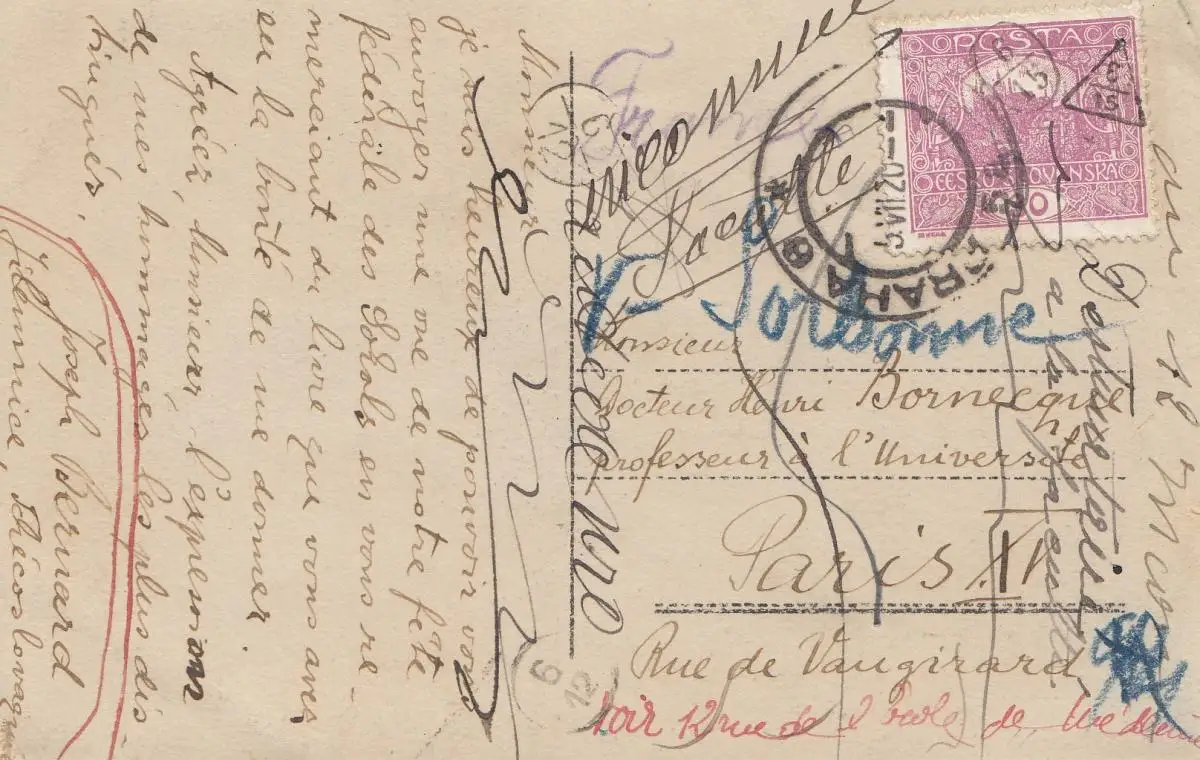 Monsieur
je suis heureux de pouvoir vous
envoyer une vue de notre fête
fédérale des Sokols en vous re-
merciant du livre que vous avez
eu la bonté de me donner.
Agréez, Monsieur, l'expression
de mes hommages les plus dis-
tingués.
Joseph Bernard
Jilemnice, Thécoslovaquie
France
inconnue
Faculté
POSTA
ČESKO-SLOVENSKÁ
PRAHA
V-Sorbonne
Monsieur
Docteur Henri Bornecque
professeur à l'Université
Paris
Rue de Vaugirard
voir 12 rue de l'école de Médecine
inconnu
au 18
Destinataire
à la
6
12